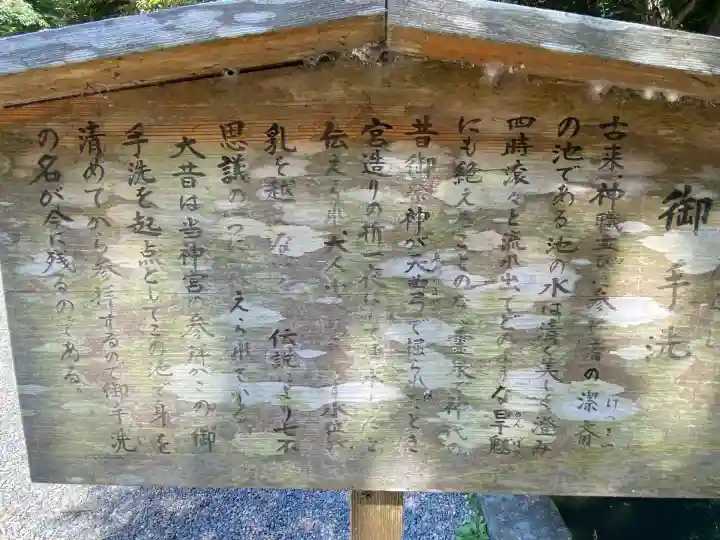 御手洗
古来、神職 参 者の潔斎
の池である池の水は清く美しく澄み
四時滾々と流れ出てどのような旱魃
にも絶えることのない霊泉で神代の
昔御祭神が天曲弓で掘られたとき
宮造りの折一夜にして
伝えられ 大人 水位
乳を越えない 伝説 より七不
思議の一つに えられている。
大昔は当神宮の参拝がこの御
手洗を起点としてこの池で身を
清めてから参拝するので御手洗
の名が今に残るのである。
けっさい
かんばつ